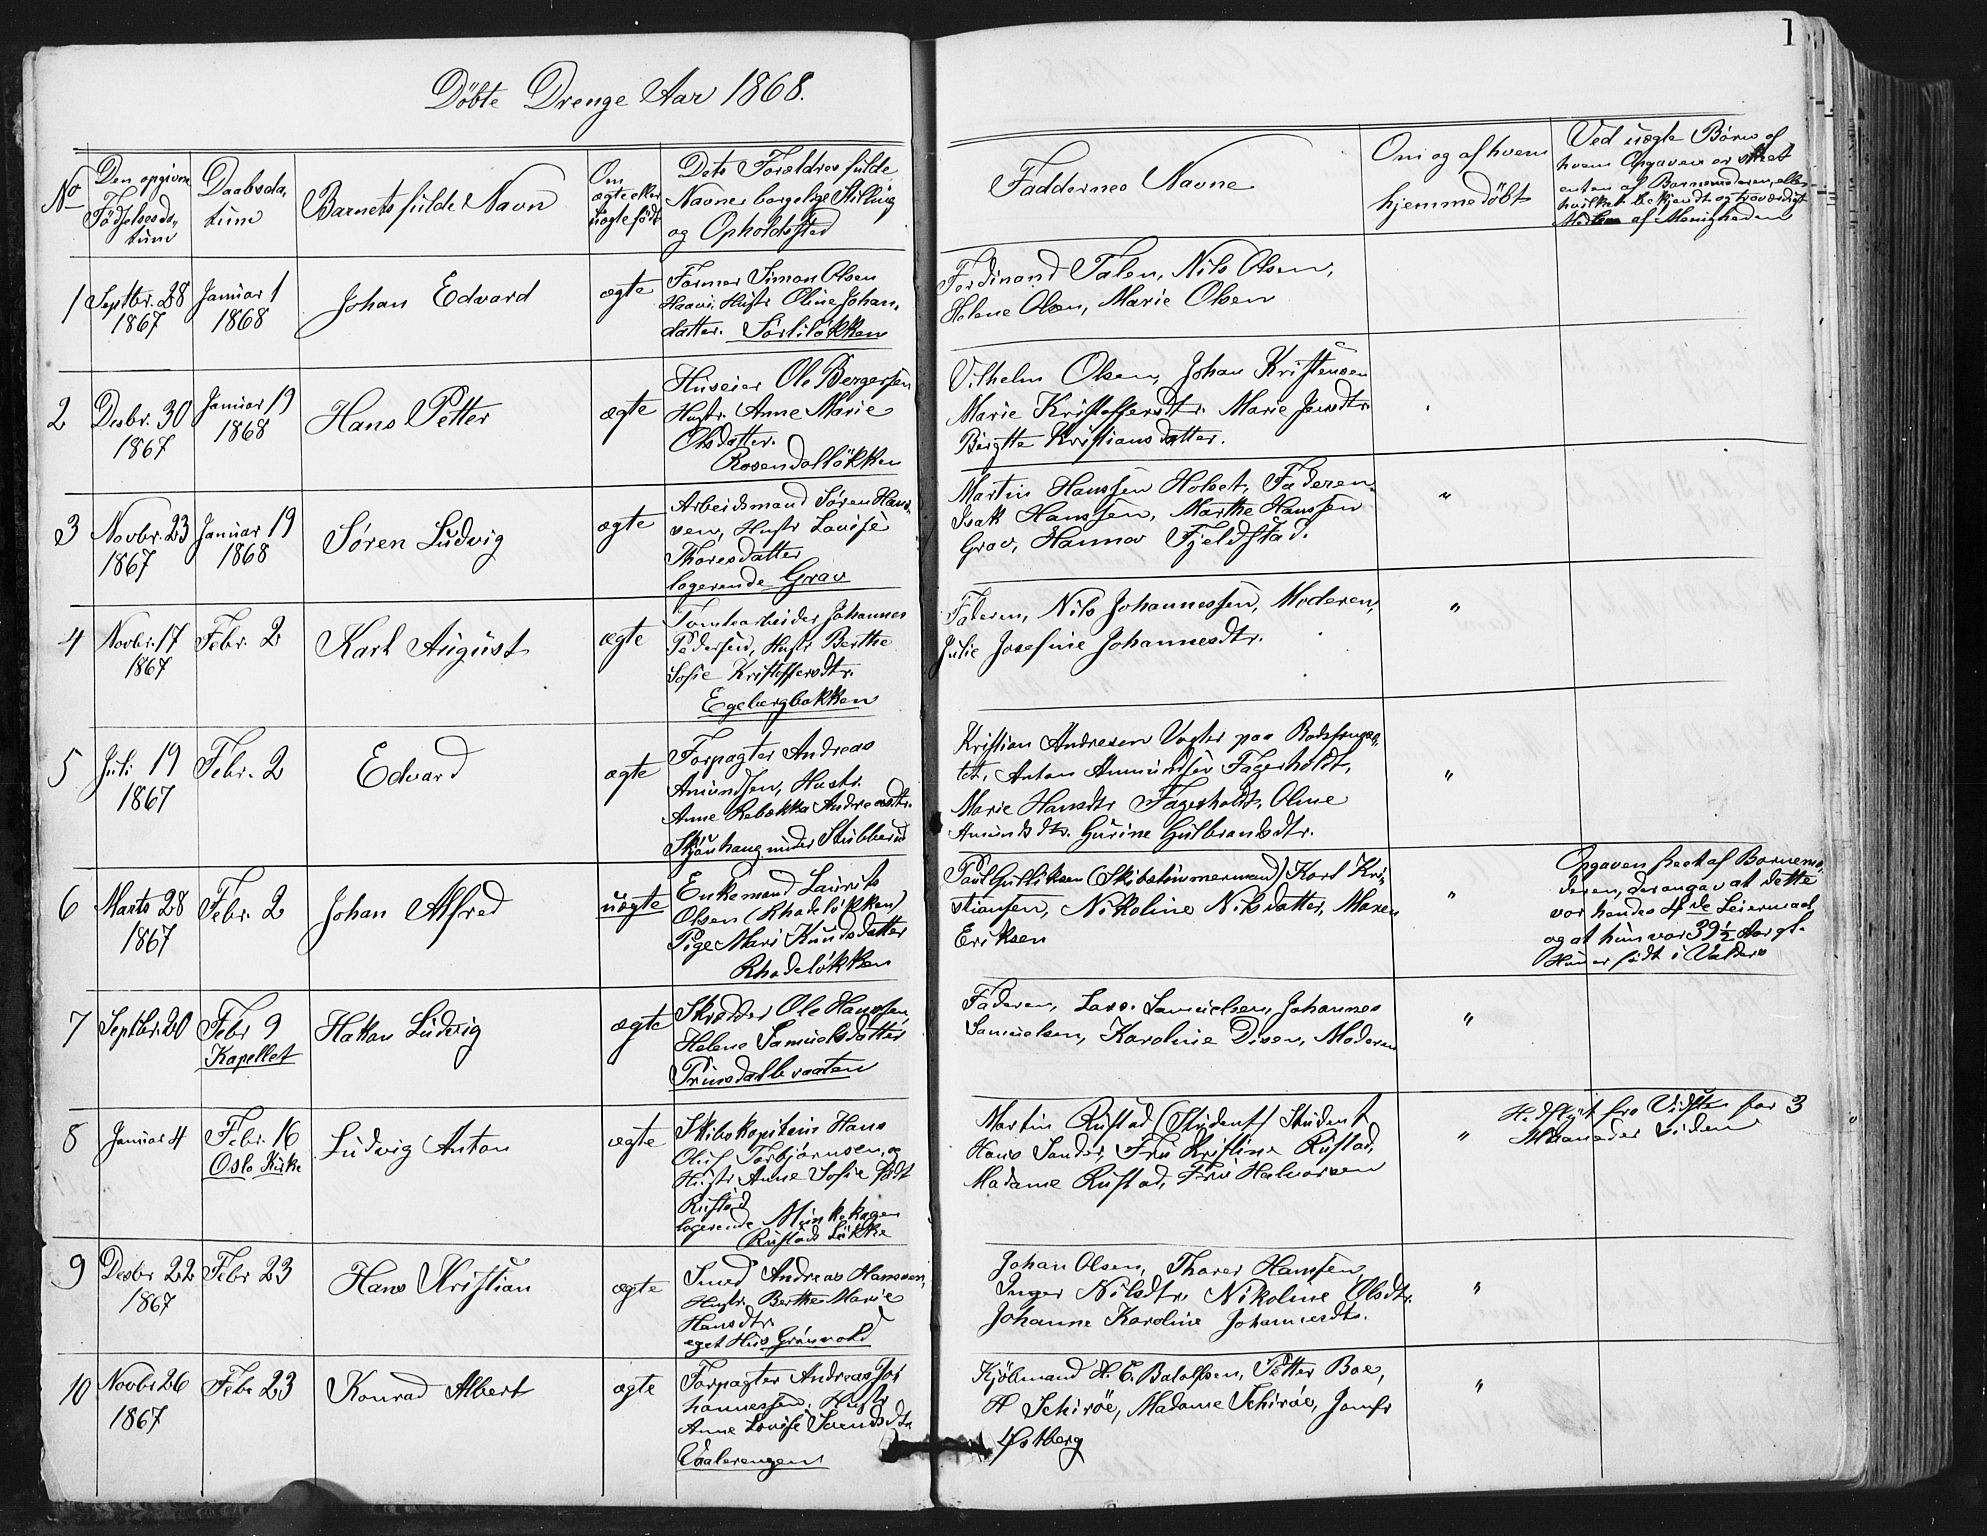 1
Döbte Drenge Aar 1868.
No
Den opgivne
Födselsda,
tum
Daabsda,
tum
Barnets fulde Navn
Om
ægte eller
uægte födt
Dets Forældres fulde
Navne borgelige Stilling
og Opholdssted
Faddernes Navne
Om og af hvem
hjemmedöbt
Ved uægte Börn af
hvem Opgaven er
enten af Barnemoderen, eller
hvilket bekjendt og troværdigt
Medlem af Menigheden
1
Septbr. 28
1867
Januar 1
1868
Johan Edvard
ægte
Former Simon Olsen
Haavi, Hustr Oline Johan,
datter. Sörlilökken
Ferdinand Talen, Nils Olsen,
Helene Olsen, Marie Olsen
2
Desbr. 30
1867
Januar 19
1868
Hans Petter
ægte
Huseier Ole Bergersen
Hustr. Anne Marie
Olsdatter.
Rosendallökken
Vilhelm Olsen, Johan Kristensen
Marie Kristoffersdtr. Marie Jensdtr.
Birgtte Kristiansdatter.
3
Novbr. 23
1867
Januar 19
1868
Søren Ludvig
ægte
Arbeidsmand Søren Hans,
sen, Hustr Lovise
Thoresdatter
logerende Grav
Martin Hanssen Holset, Faderen
Isak Hanssen, Marthe Hanssen
Grav, Hanna Fjeldstad.
"
4
Novbr. 17
1867
Febr. 2
Karl August
ægte
Tomtearbeider Johannes
Pedersen, Hustr Berthe
Sofie Kristoffersdtr.
Egebergbakken
Faderen, Nils Johannessen, Moderen,
Julie Josefine Johannesdtr.
"
5
Juli 19
1867
Febr. 2
Edvard
ægte
Forpagter Andreas
Amundsen, Hustr.
Anne Rebækka Andreasdtr.
Skjönhaug under Stubberud
Kristian Andresen Vogter paa Bodsfengs,
let, Anton Ammundsen Fagerholdt,
Marie Hansdtr Fagerholdt, Oline
Amundsdtr. Gurine Gulbrandsdtr.
"
6
Marts 28
1867
Febr. 2
Johan Alfred
uægte
Enkemand Laurits
Olsen (Rhodelökken)
Pige Mari Knudsdatter
Rhodelökken
Paul Gulliksen (Skibstimmermand) Karl Kri,
stiansen, Nikoline Nilsdatter, Maren
Eriksen
"
Opgaven skeet af Barnemo,
deren, der angav at dette
var hendes 4de Leiermaal
og at hun var 39½ Aar gl.
Hun er födt i Valders
7
Septbr. 20
Febr 9
Kapellet
Hakon Ludvig
ægte
Skrædder Ole Hanssen,
Helene Samuelsdatter
Prinsdalbraaten
Faderen, Lars Samuelsen, Johannes
Samuelsen, Karoline Disen, Moderen
"
8
Januar 4
Febr. 16
Oslo Kirke
Ludvig Anton
ægte
Skibskaptein Hans
Oluf Torbjørnsen, og
Hustr Anne Sofie födt
Rustad
logerende Munkehagen
Rustads Lökke
Martin Rustad (Student) Student
Hans Sander, Fru Kristine Rustad,
Madame Rustad, Fru Halvorsen
"
Hidflyt fra Vidsten for 3
Maaneder siden
9
Desbr 22
1867
Febr 23
Hans Kristian
ægte
Smed Andreas Hanssen,
Hustr. Berthe Marie
Hansdtr.
eget Hus Grönvold
Johan Olsen, Thorer Hanssen
Inger Nilsdtr. Nikoline Olsdtr.
Johanne Karoline Johannesdtr.
"
10
Novbr 26
1867
Febr 23
Konrad Albert
ægte
Forpagter Andreas Jo,
hannessen, Hustr
Anne Lovise Svendsdtr
Vaalerengen
Kjöbmand H. E. Bolalfsen, Petter Boe,
H Schiröe, Madame Schiröe, Jomfr
Östberg
"